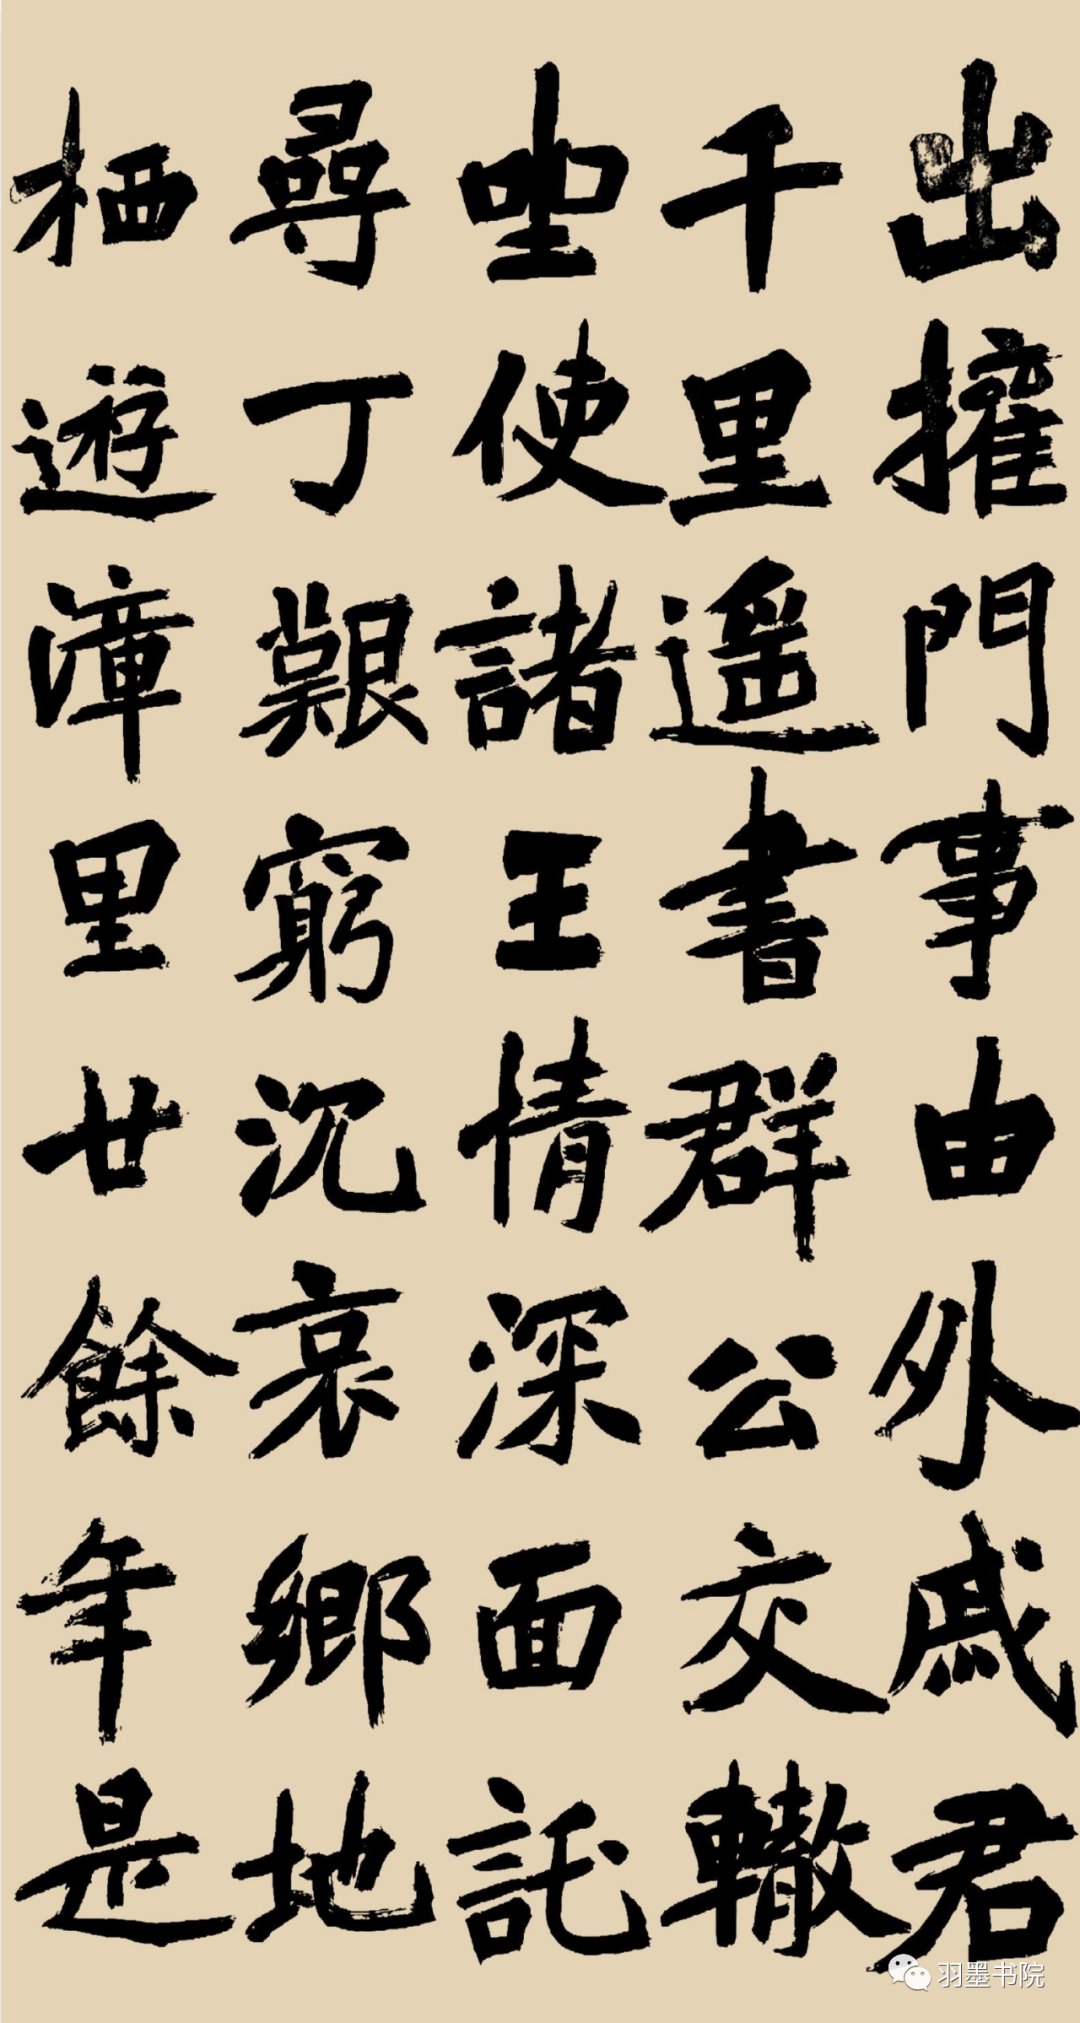 出擁門事由外戚君
千里遥書群公交轍
聖使諸王情深面託
尋丁艱窮沉哀鄉地
栖遊漳里廿餘年是
羽墨书院